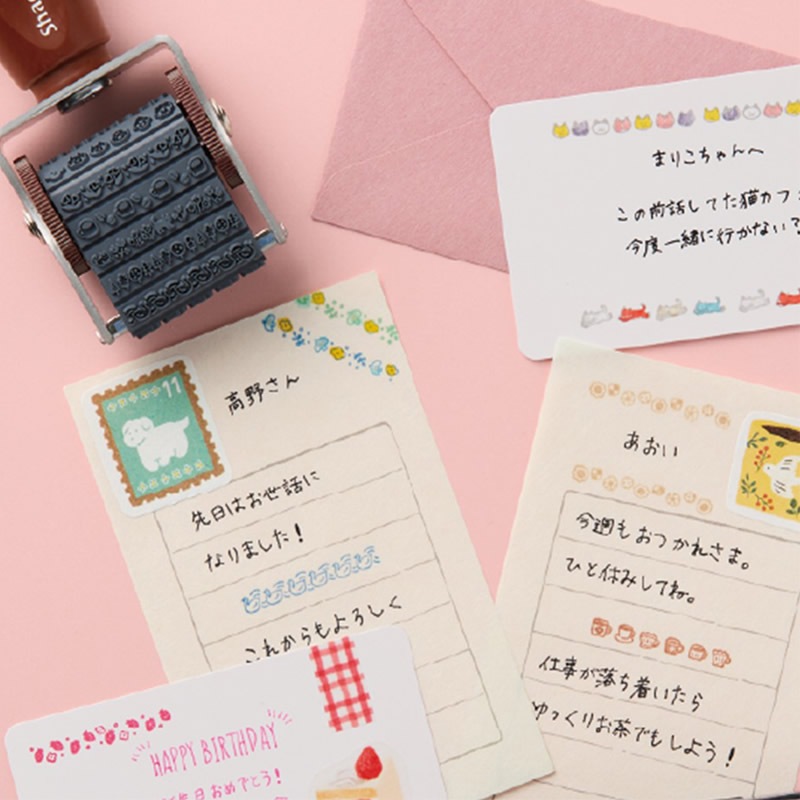 Sha
まりこちゃんへ
この前話してた猫カフ
今度一緒に行かない?
11
高野さん
先日はお世話に
なりました!
これからもよろしく
あおい
今週もおつかれさま。
ひと休みしてね。
仕事が落ち着いたら
ゆっくりお茶でもしよう!
HAPPY BIRTHDAY
生日おめでとう!